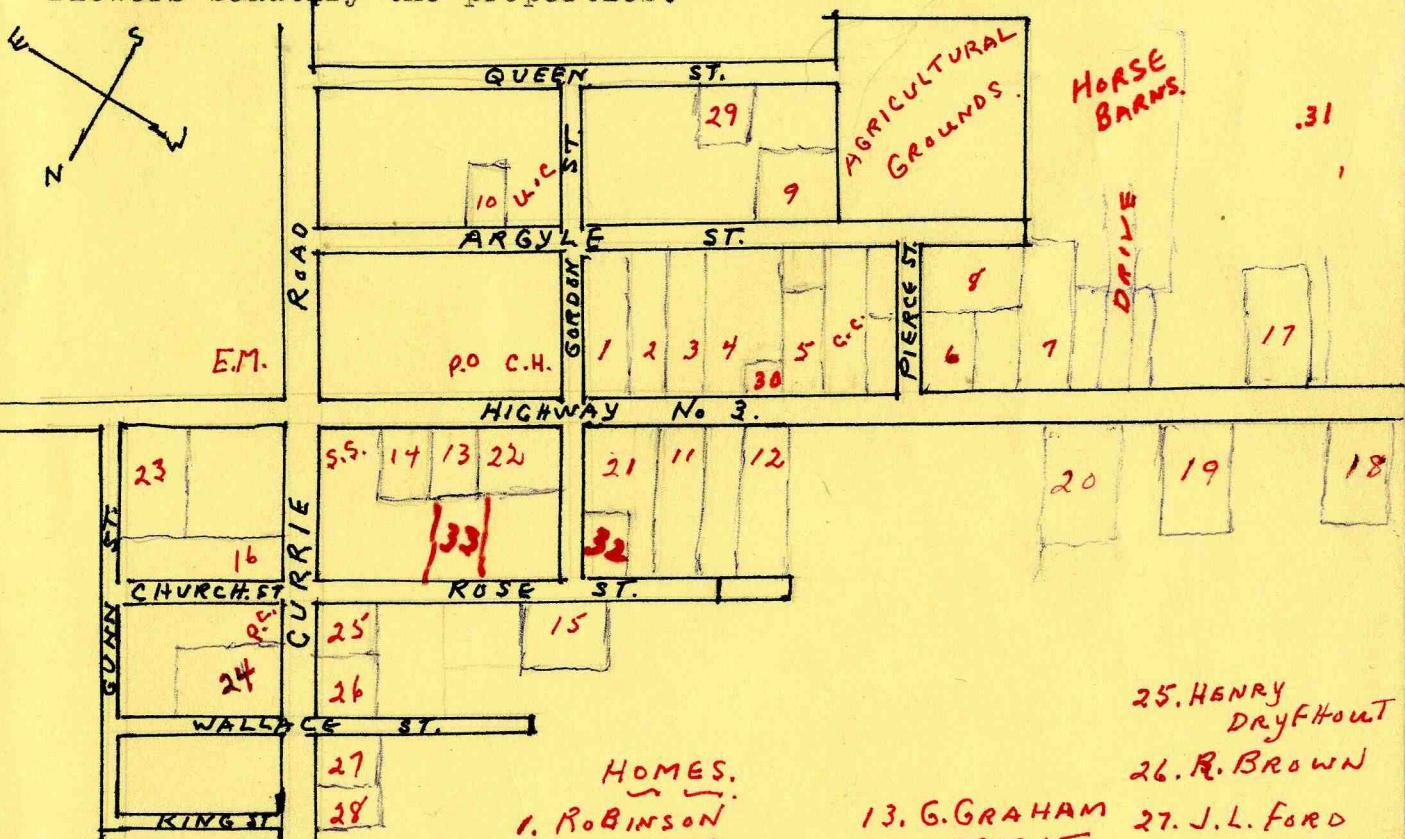 the properties.
E S
N W
QUEEN ST.
AGRICULTURAL
GROUNDS.
HORSE
BARNS.
.31
29
10 U.C.
ST.
9
ARGYLE ST.
ROAD
GORDON
PIERCE ST.
DRIVE
8
E.M.
P.O C.H.
1 2 3 4 5 C.C.
30
6 7 17
HIGHWAY No 3.
23
S.S. 14 13 22
21 11 12
20 19 18
16
33
32
GUNN ST.
CURRIE
CHURCH. ST
ROSE ST.
P.C.
24
25
15
26
WALLACE ST.
27
28
KING ST
HOMES.
1. ROBINSON
13. G. GRAHAM
25. HENRY
DRYFHOUT
26. R. BROWN
27. J. L. FORD